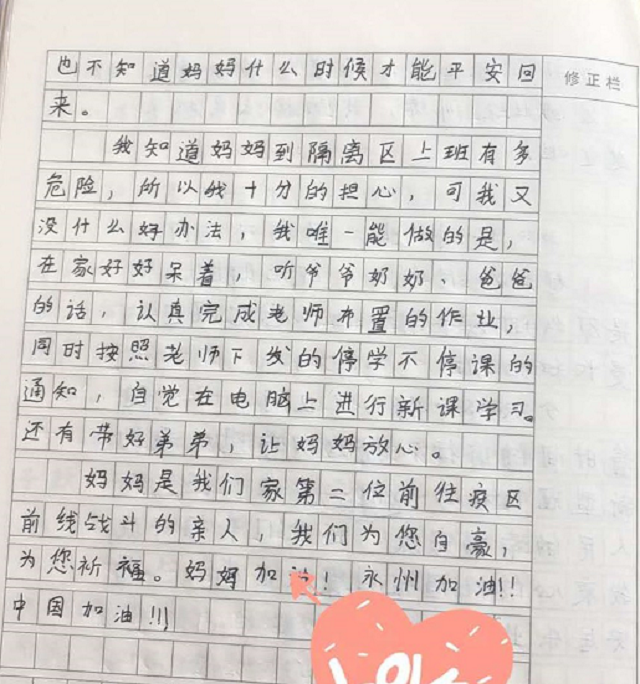 也不知道妈妈什么时候才能平安回
修正栏
来。
我知道妈妈到隔离区上班有多
危险，所以我十分的担心，可我又
没什么好办法，我唯一能做的是，
在家好好呆着，听爷爷奶奶、爸爸
的话，认真完成老师布置的作业，
同时按照老师下发的停学不停课的
通知，自觉在电脑上进行新课学习。
还有带好弟弟，让妈妈放心。
妈妈是我们家第二位前往疫区
前线战斗的亲人，我们为您自豪，
为您祈福。妈妈加油！永州加油!!
中国加油!!!